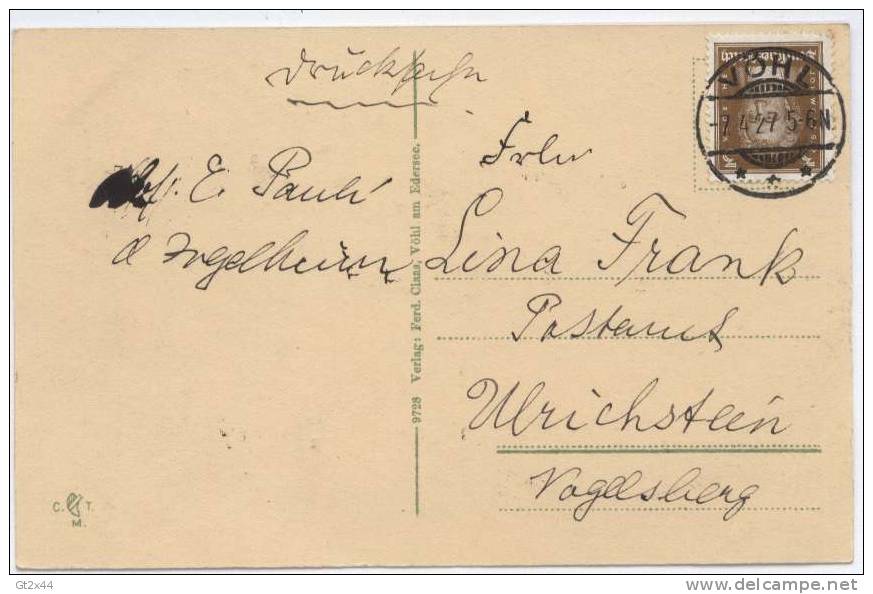 Drucksache
E. Pauli
Ingelheim
Frln
Lina Frank
Postamt
Ulrichstein
Vogelsberg
9728 Verlag: Ferd. Claas, Vöhl am Edersee.
VÖHL
-7.4.27 5-6N
Deutsches Reich
C. T.
M.
Gt2x44
delcampe.net